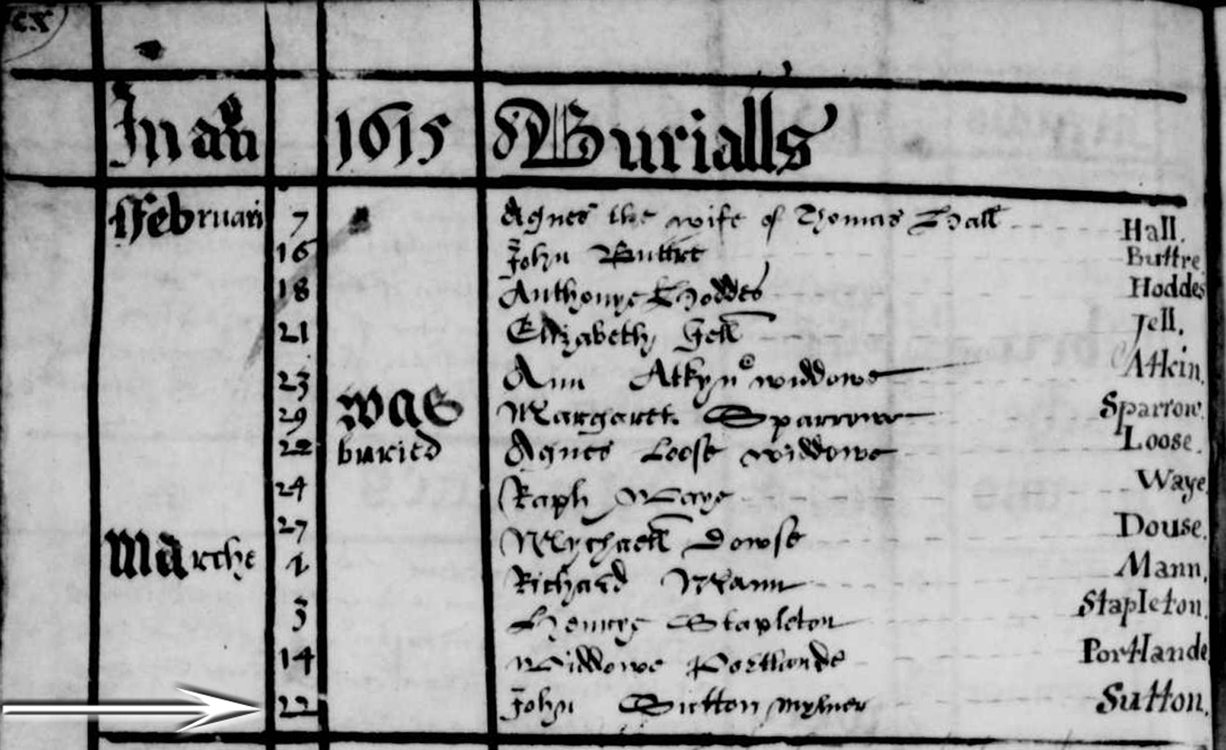 In an 1615 Burialls
ffebruari 7 Agnes the wife of Thomas Hall Hall.
16 John Buttre Buttre
18 Anthonye Hoddes Hoddes
21 Elizabeth Jell Jell.
23 Ann Atkyn widdowe Atkin.
29 was Margarett Sparrowe Sparrow.
22 buried Agnes Loose widdowe Loose.
24 Raph Waye Waye.
27 Mychaell Dowse Douse.
Marche 1 Richard Mann Mann.
3 Henrye Stapleton Stapleton.
14 Widdowe Portlande Portlande
22 John Sutton mylner Sutton.